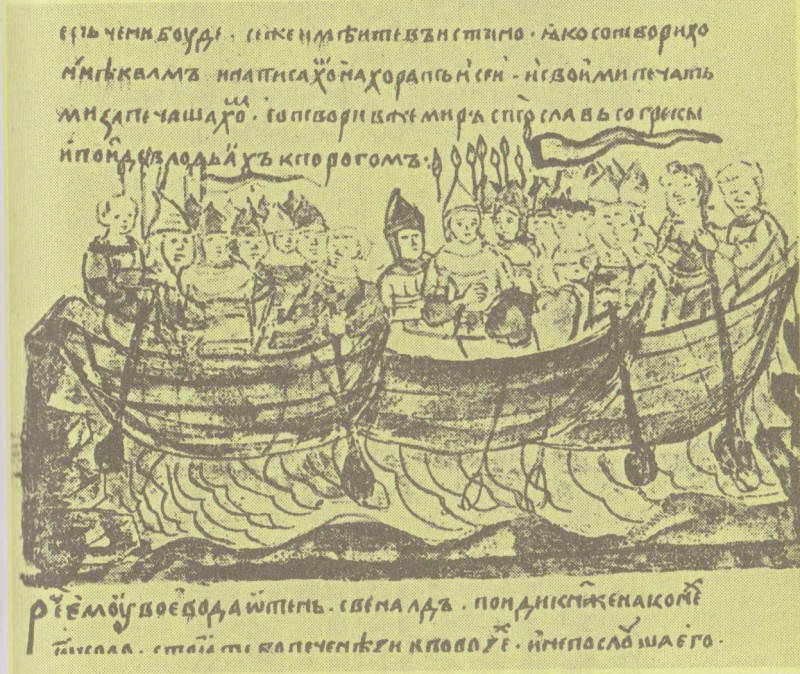 есть чени боуде · се же имѣите въ истино · ꙗко сотворихо
ны нѣ к вамъ и написахоⷨ на хоратьи сеи · и своими печать
ми запечаша хоⷨ · сотвори в же миръ ст҃ославъ со греки
и поиде в лодьꙗхъ к порогомъ :
Рече емоу воевода ѿтень · свеналдъ · поиди кнѧже на коне
около · стоꙗть бо печенѣзи в порозе · и не послоуша его ·